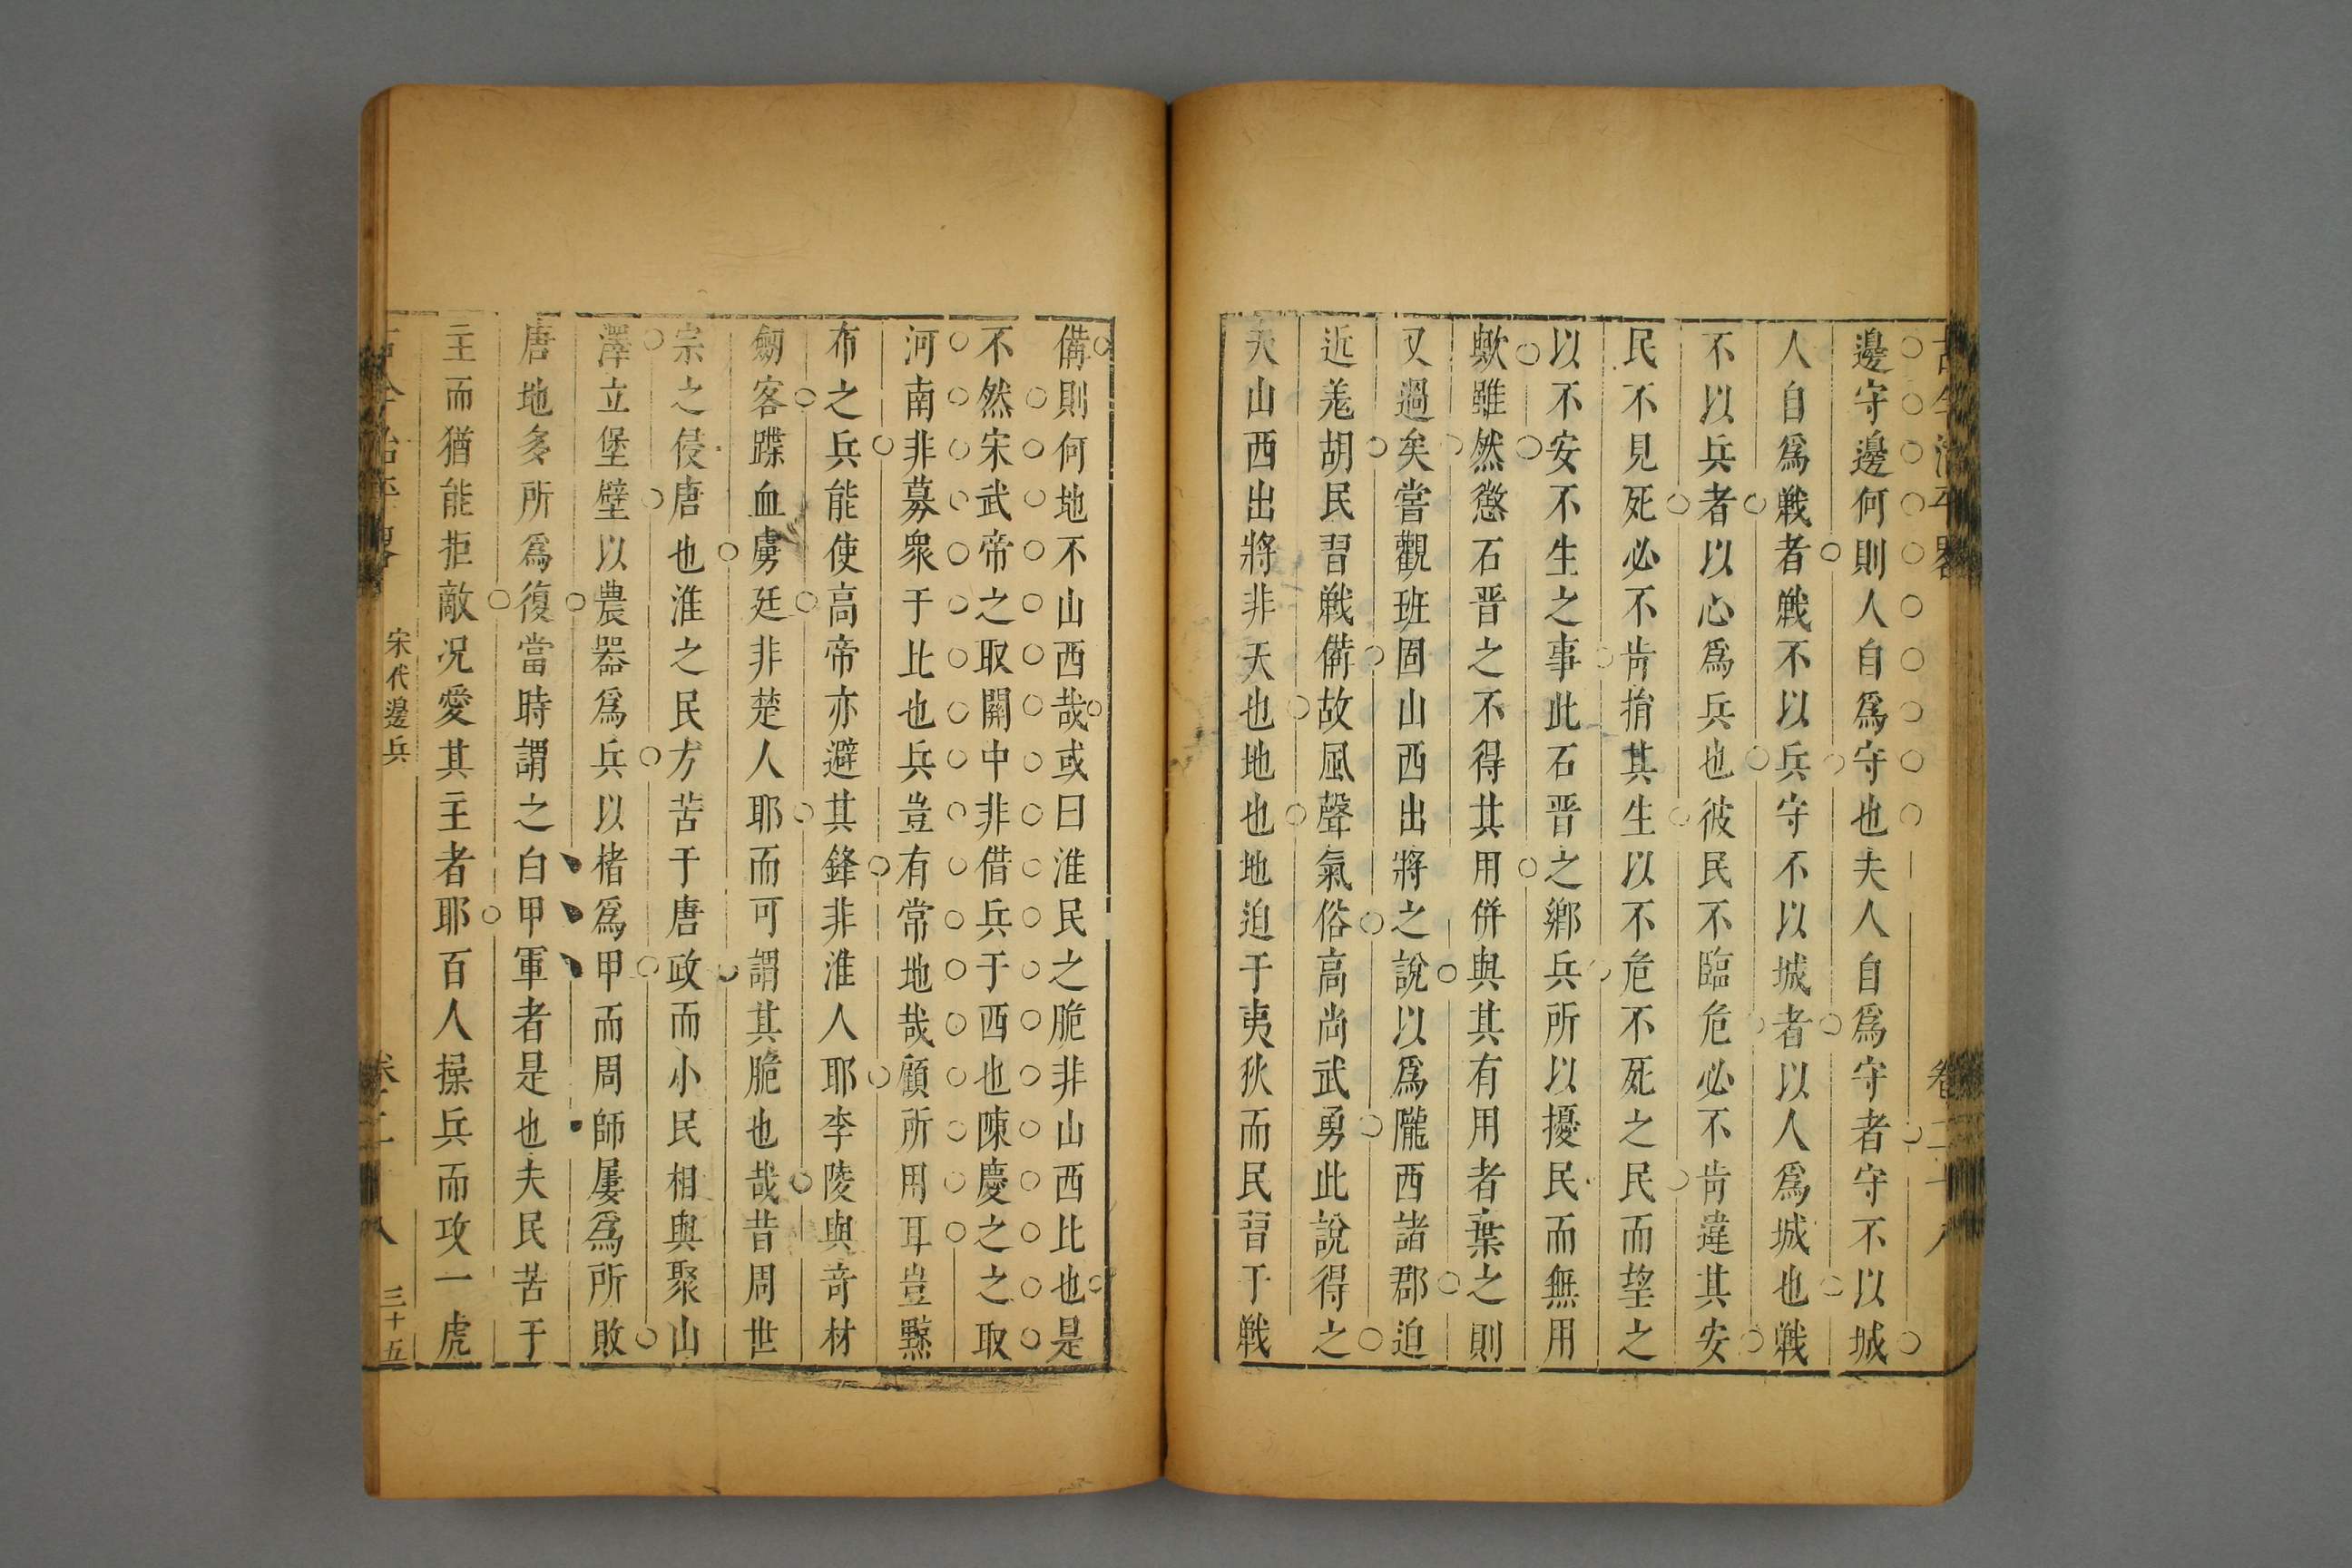 古今治平畧
卷二十八
邊守邊何則人自爲守也夫人自爲守者守不以城
人自爲戰者戰不以兵守不以城者以人爲城也戰
不以兵者以心爲兵也彼民不臨危必不肯違其安
民不見死必不肯捐其生以不危不死之民而望之
以不安不生之事此石晋之鄉兵所以擾民而無用
歟雖然懲石晋之不得其用併與其有用者棄之則
又過矣嘗觀班固山西出將之說以爲隴西諸郡迫
近羗胡民習戰備故風聲氣俗高尚武勇此說得之
夫山西出將非天也地也地迫于夷狄而民習于戰
備則何地不山西哉或曰淮民之脆非山西比也是
不然宋武帝之取關中非借兵于西也陳慶之之取
河南非募衆于北也兵豈有常地哉顧所用耳豈黥
布之兵能使高帝亦避其鋒非淮人耶李陵與竒材
劒客蹀血虜廷非楚人耶而可謂其脆也哉昔周世
宗之侵唐也淮之民方苦于唐政而小民相與聚山
澤立堡壁以農器爲兵以楮爲甲而周師屢爲所敗
唐地多所爲復當時謂之白甲軍者是也夫民苦于
主而猶能拒敵况愛其主者耶百人操兵而攻一虎
古今治平畧
宋代邊兵
卷二十八
三十五